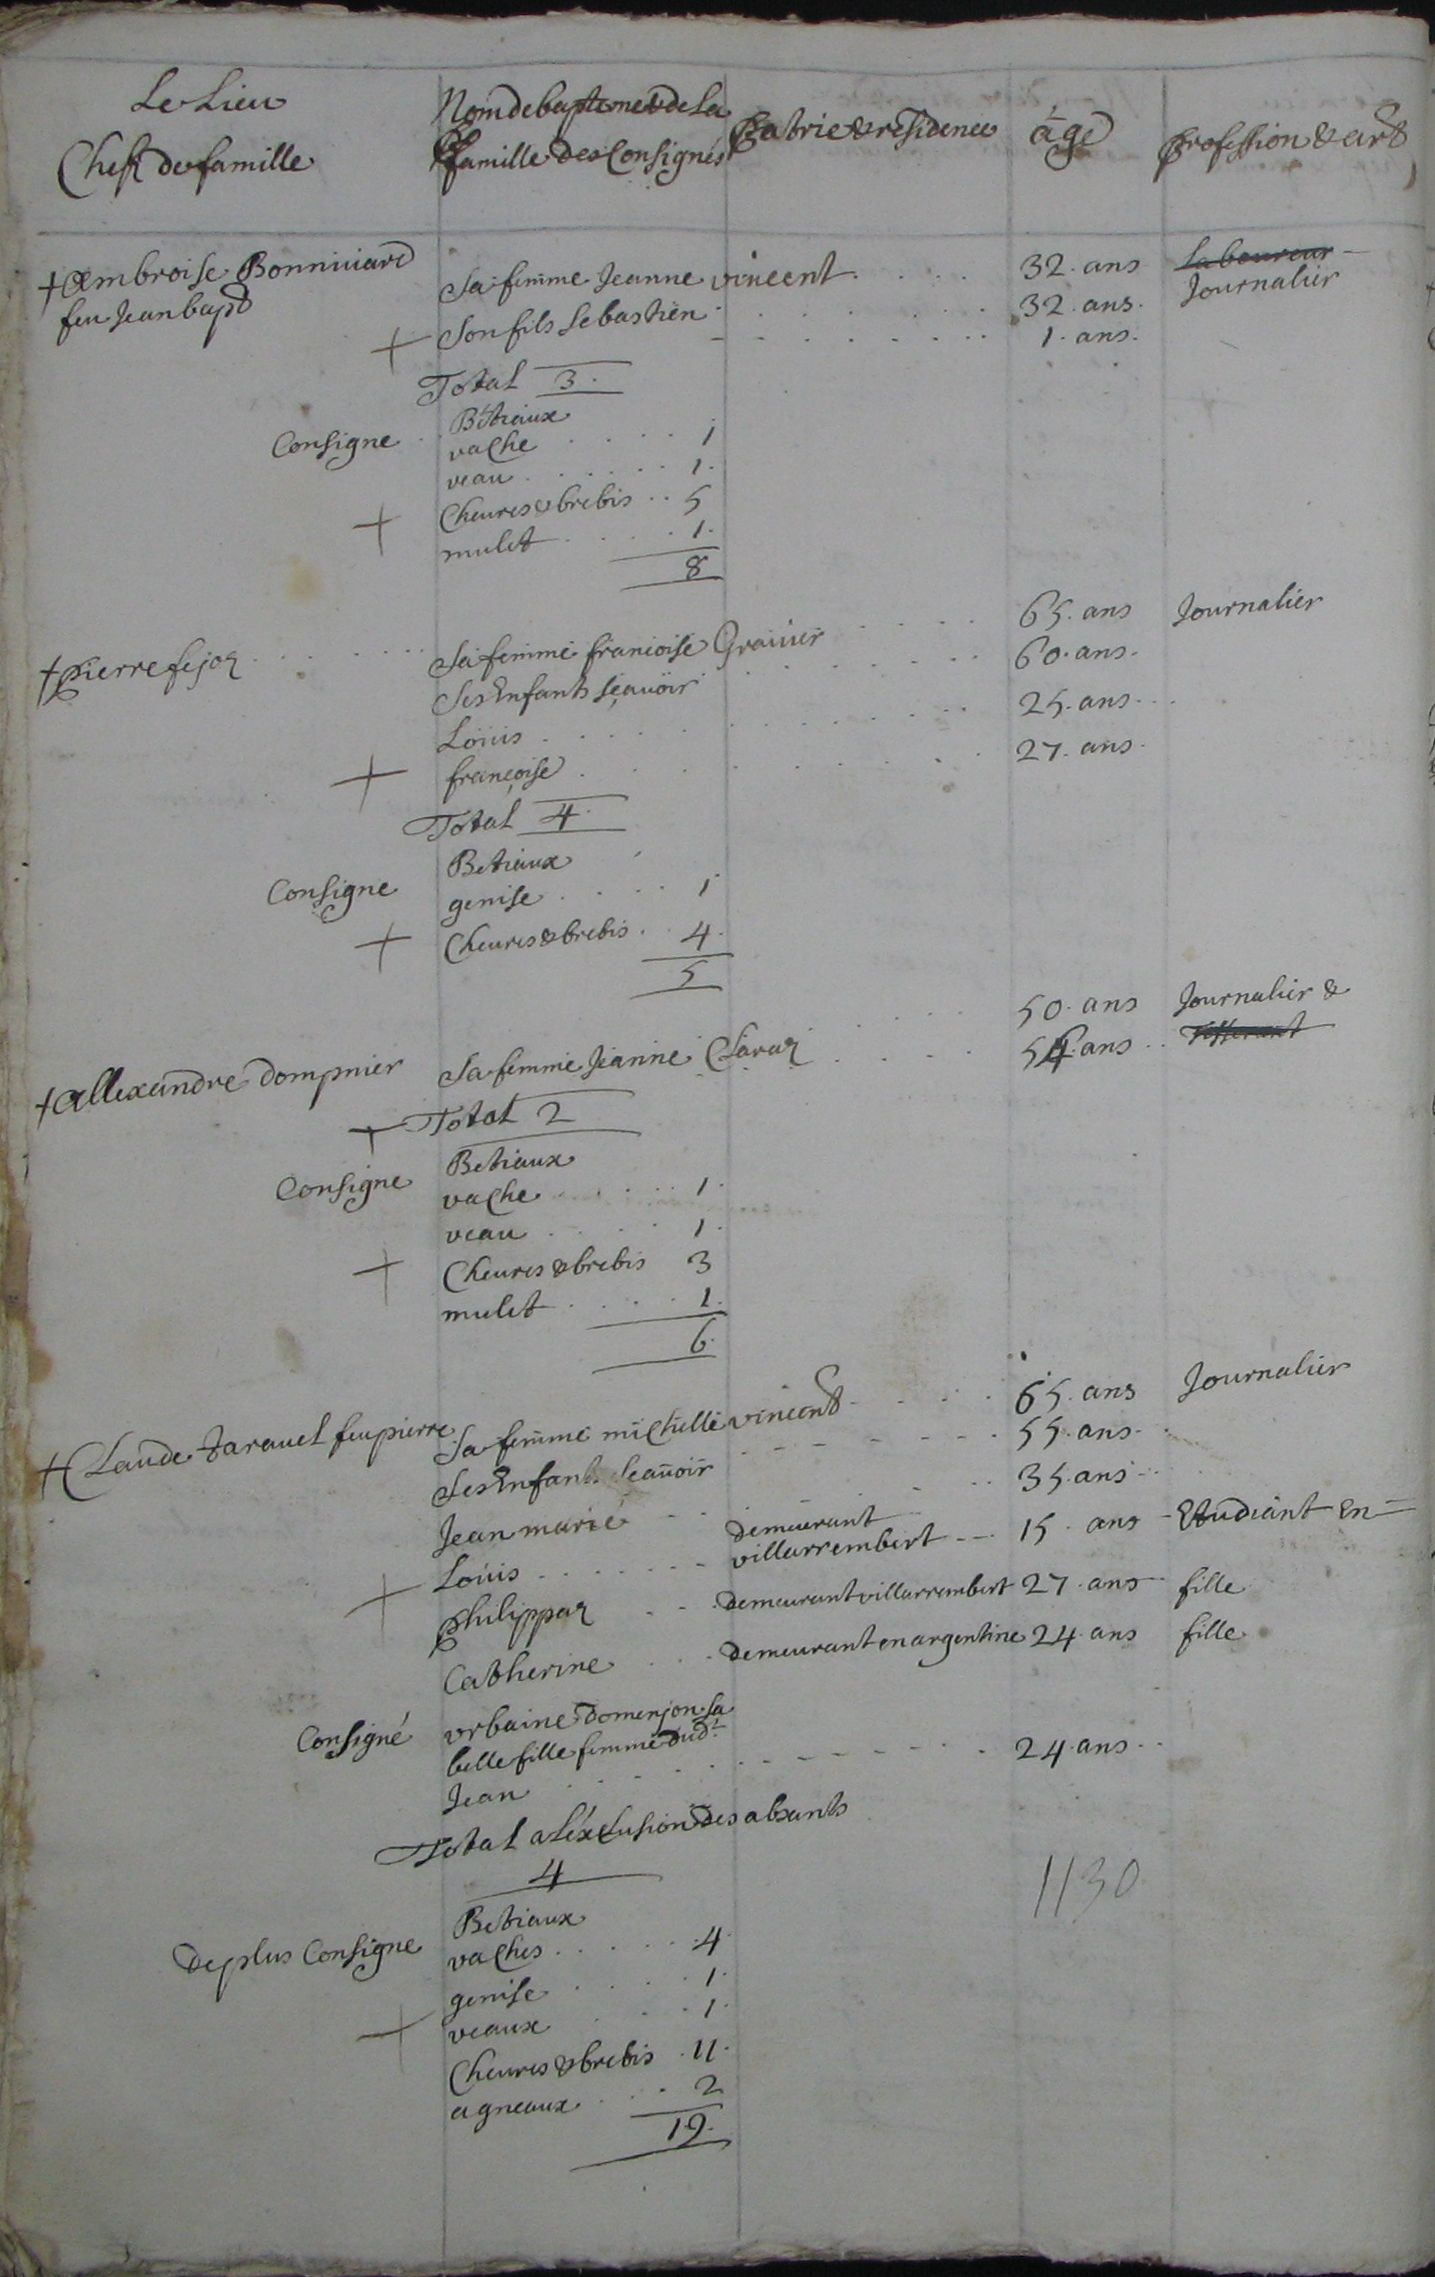 Le Lieu
Chefs de famille
Nom de baptemes de La
famille des Consignés
patrie & residence
âge
profession & art
+ Ambroise Bonniuard 32. ans Laboureur
feu Jean bapt Journalier
Sa femme Jeanne vincent 32. ans.
+ Son fils Sebastien 1. ans.
Total 3.
Consigne Bétiaux
vache 1
veau 1.
+ Cheures & brebis 5
mulet 1.
8
+ pierre fejoz 65. ans Journalier
Sa femme francoise Grauier 60. ans.
Ses Enfants sçauöir
Loüis 25. ans
+ françoise 27. ans
Total 4.
Consigne Betiaux
genise 1
+ Cheures & brebis 4.
5
+ allexandre dompnier 50. ans Journalier &
Sa femme Jeanne Claraz ans
+ Total 2
Consigne Betiaux
vache 1.
veau 1.
+ Cheures & brebis 3
mulet 1.
6.
+ Claude taravel feu pierre 65. ans Journalier
Sa femme michelle vincent 55. ans.
Ses Enfants Seauoir
Jean marié 35. ans
+ Loüis demeurant villarrembert 15. ans Etudiant En=
philippaz demeurant villarrembert 27. ans fille
Catherine demeurant en argentine 24. ans fille
Consigné vrbaine Domenjon sa
belle fille femme dud.t
Jean 24. ans
Total a Léxclusion des absants
4
1130
De plus Consigne Betiaux
vaches 4.
genise 1.
+ veaux 1.
Cheures & brebis 11.
agneaux 2
19.